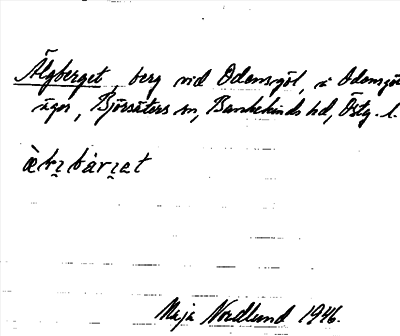 Älgberget, berg vid Odensgöl, i Odensgöl
ägor, Björsäters sn, Bankekinds hd, Östg. l.
Maja Nordlund 1946.